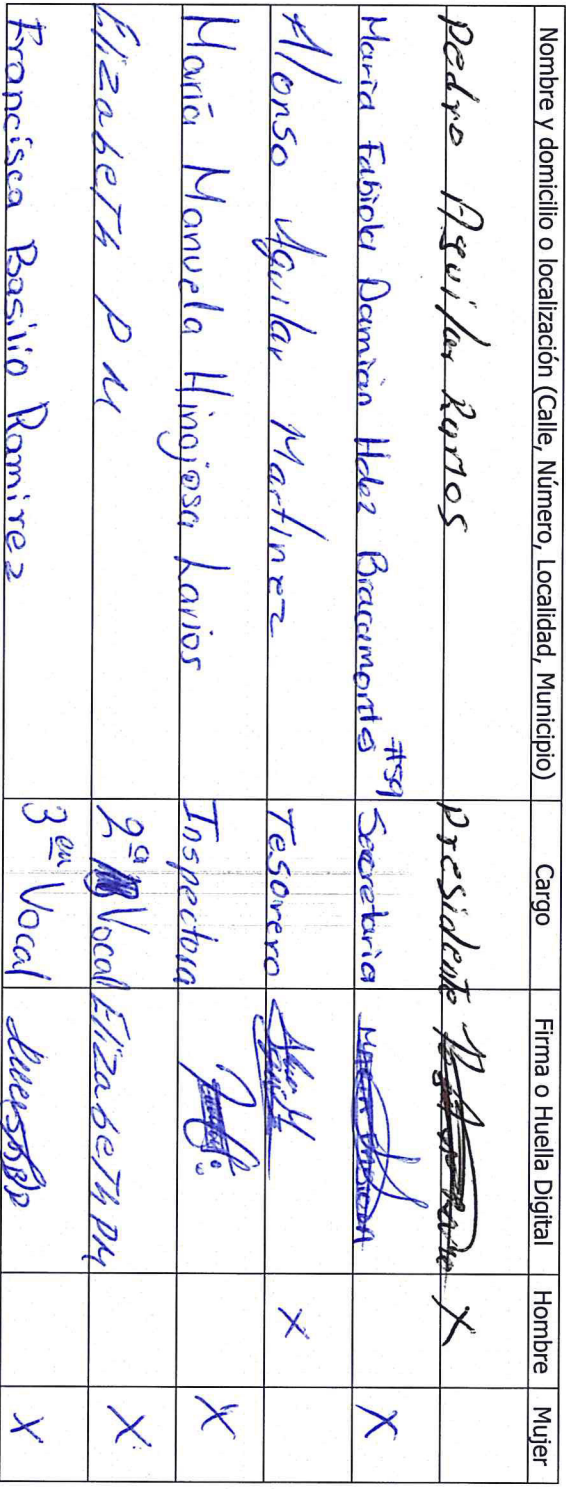 Nombre y domicilio o localización (Calle, Número, Localidad, Municipio) Cargo Firma o Huella Digital Hombre Mujer
Pedro Aguilar Ramos Presidente X
Maria Fabiola Damian Hdez Bracamonte #59 Secretaria X
Alonso Aguilar Martinez Tesorero X
María Manuela Hinojosa Larios Inspectora X
Elizabeth PM 2ª Vocal Elizabeth PM X
Francisca Basilio Ramirez 3er Vocal X